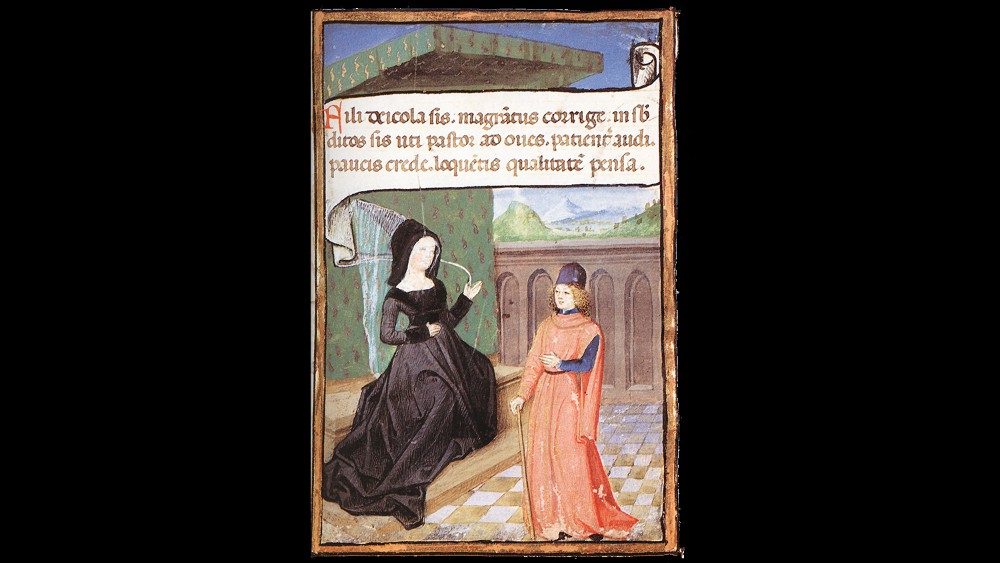 Fili deicola sis. magnatus corrige. in sb̄
ditos sis uti pastor ad oues. patient᷒ audi.
paucis crede. loquētis qualitatē pensa.